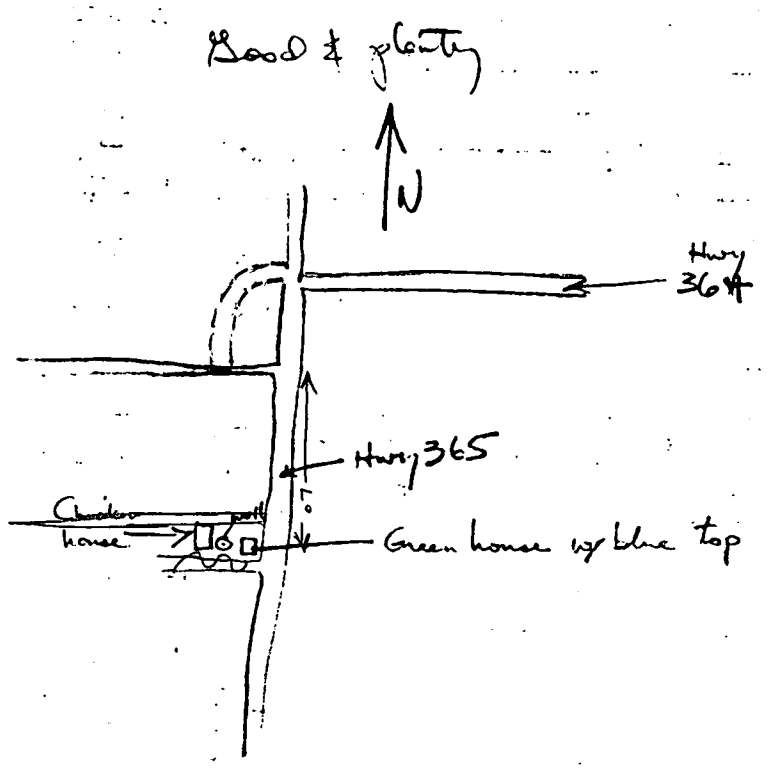 Good & plenty
N
Hwy
364
Hwy 365
.07
Chicken
well
house
Green house w/ blue top